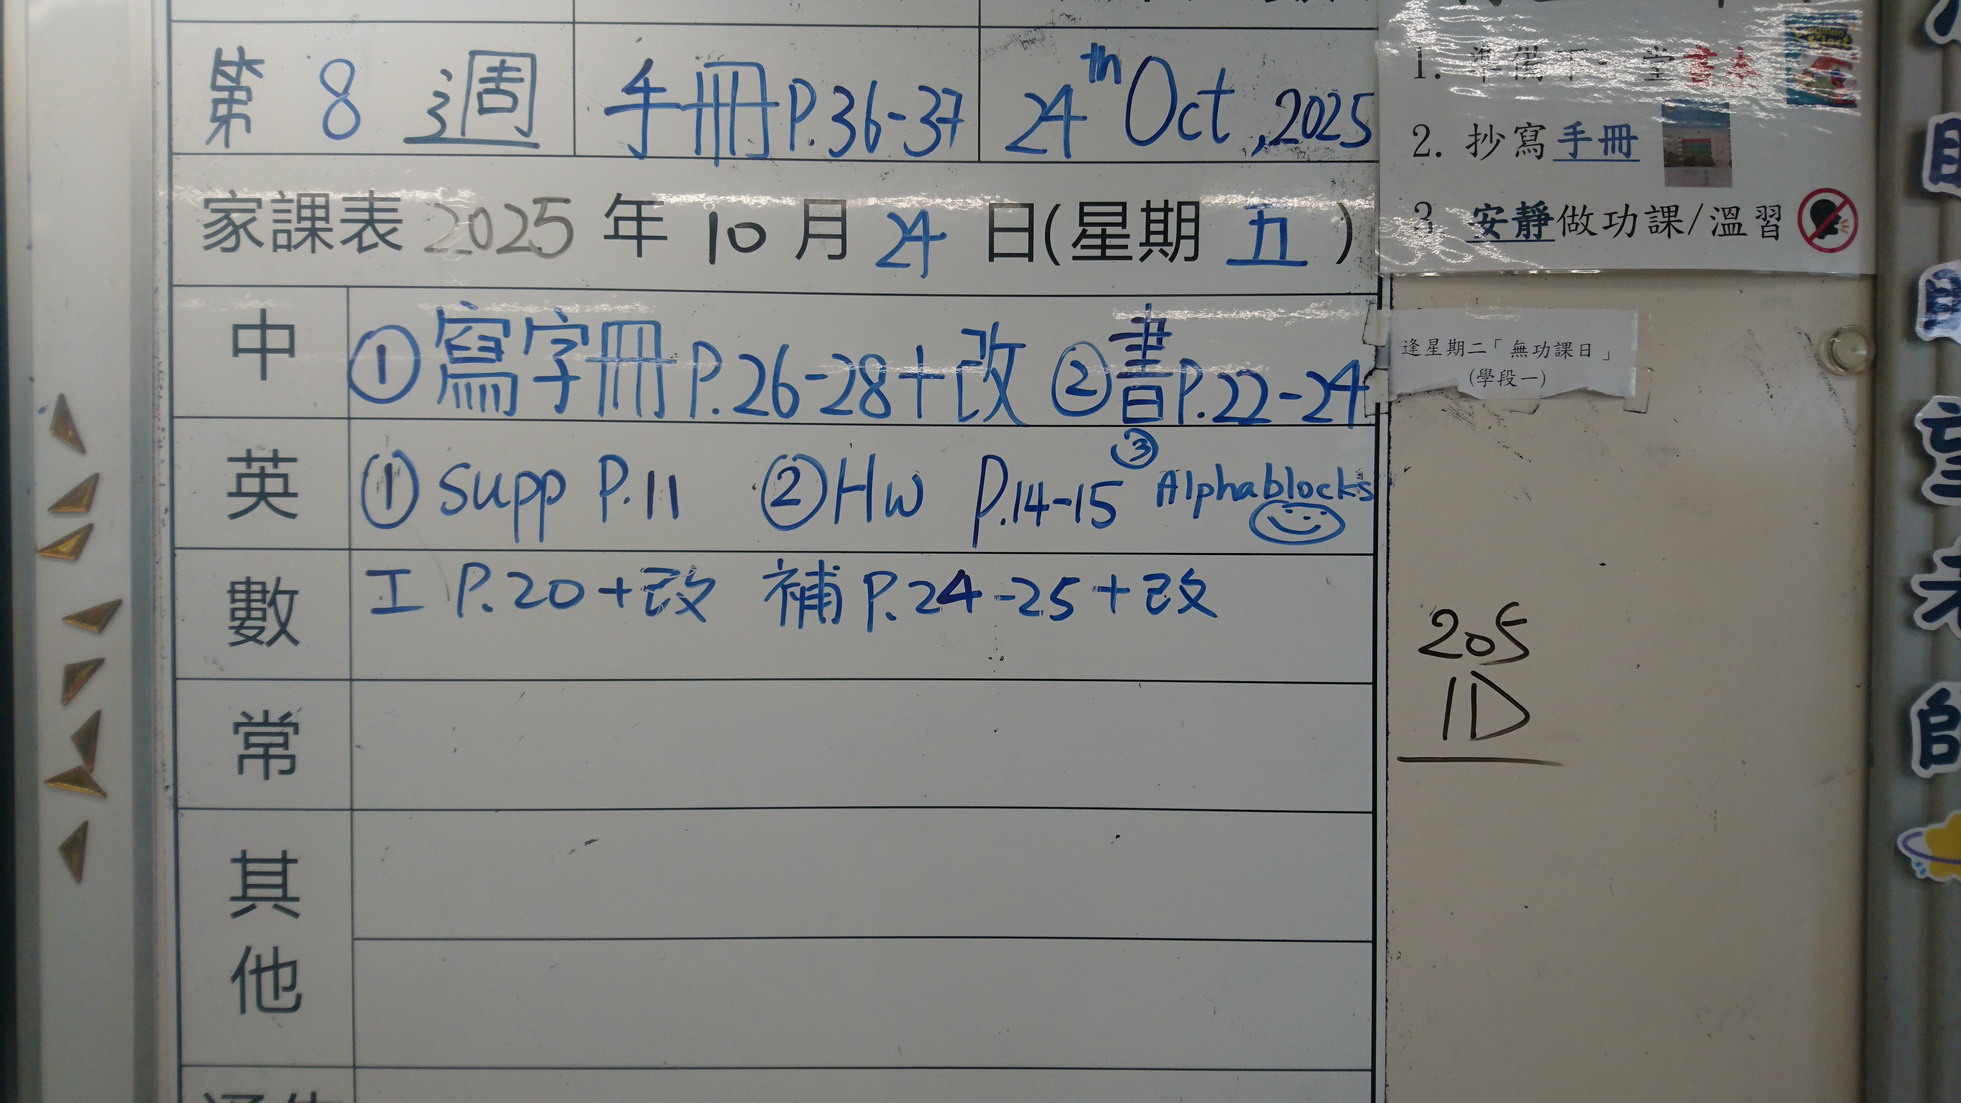 第 8 週 手冊 P.36-37 24th Oct, 2025
家課表 2025 年 10 月 24 日(星期 五 )
中 ① 寫字冊 P.26-28+改 ② 書 P.22-24
英 ① Supp P.11 ② HW P.14-15 ③ Alphablocks
數 工 P.20+改 補 P.24-25+改
常
其他
1. 準備下一堂書本
2. 抄寫手冊
3 安靜做功課/溫習
逢星期二「無功課日」
(學段一)
205
1D
望
老
師